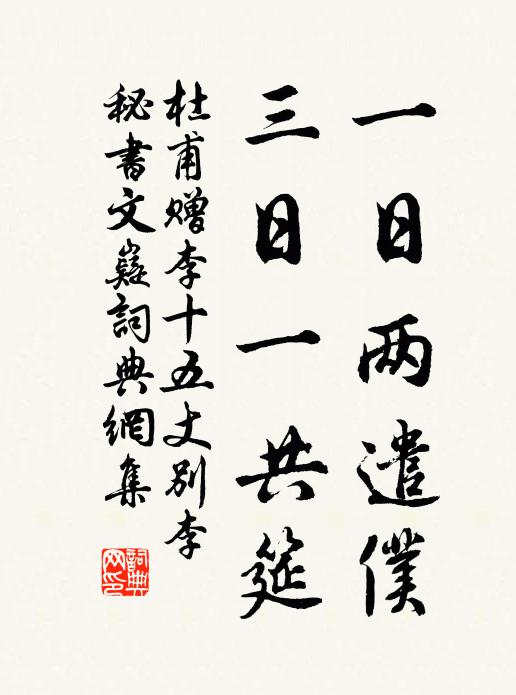 一日两遣僕
三日一共筵
杜甫赠李十五丈别李
秘書文嶷詞典網集
詞典网印